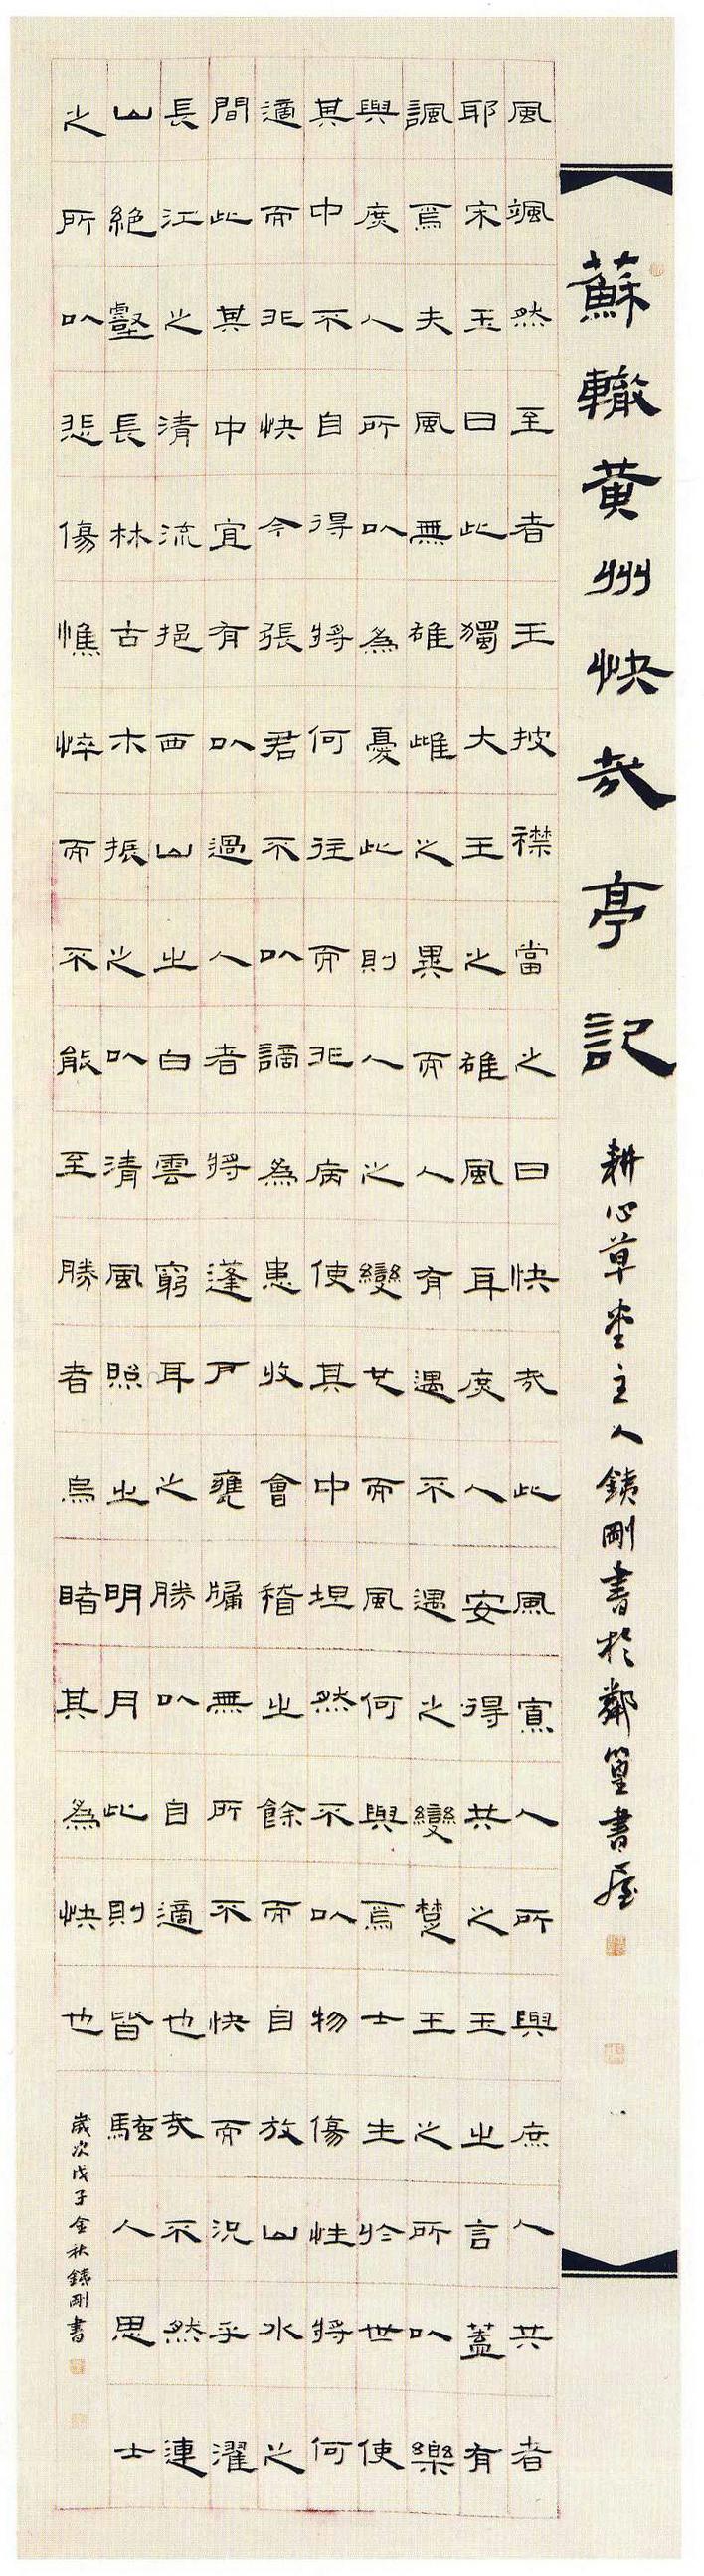 蘇轍黃州快哉亭記 耕心草堂主人銕剛書於鄰篁書屋
風颯然至者王披襟當之曰快哉此風寡人所與庶人共者
耶宋玉曰此獨大王之雄風耳庶人安得共之玉之言蓋有
諷焉夫風無雄雌之異而人有遇不遇之變楚王之所以樂
與庶人所以為憂此則人之變也而風何與焉士生於世使
其中不自得將何往而非病使其中坦然不以物傷性將何
適而非快今張君不以謫為患收會稽之餘而自放山水之
間此其中宜有以過人者將蓬戶甕牖無所不快而況乎濯
長江之清流挹西山之白雲窮耳之勝以自適也哉不然連
山絕壑長林古木振之以清風照之明月此則皆騷人思士
之所以悲傷憔悴而不能至勝者烏睹其為快也
歲次戊子金秋銕剛書